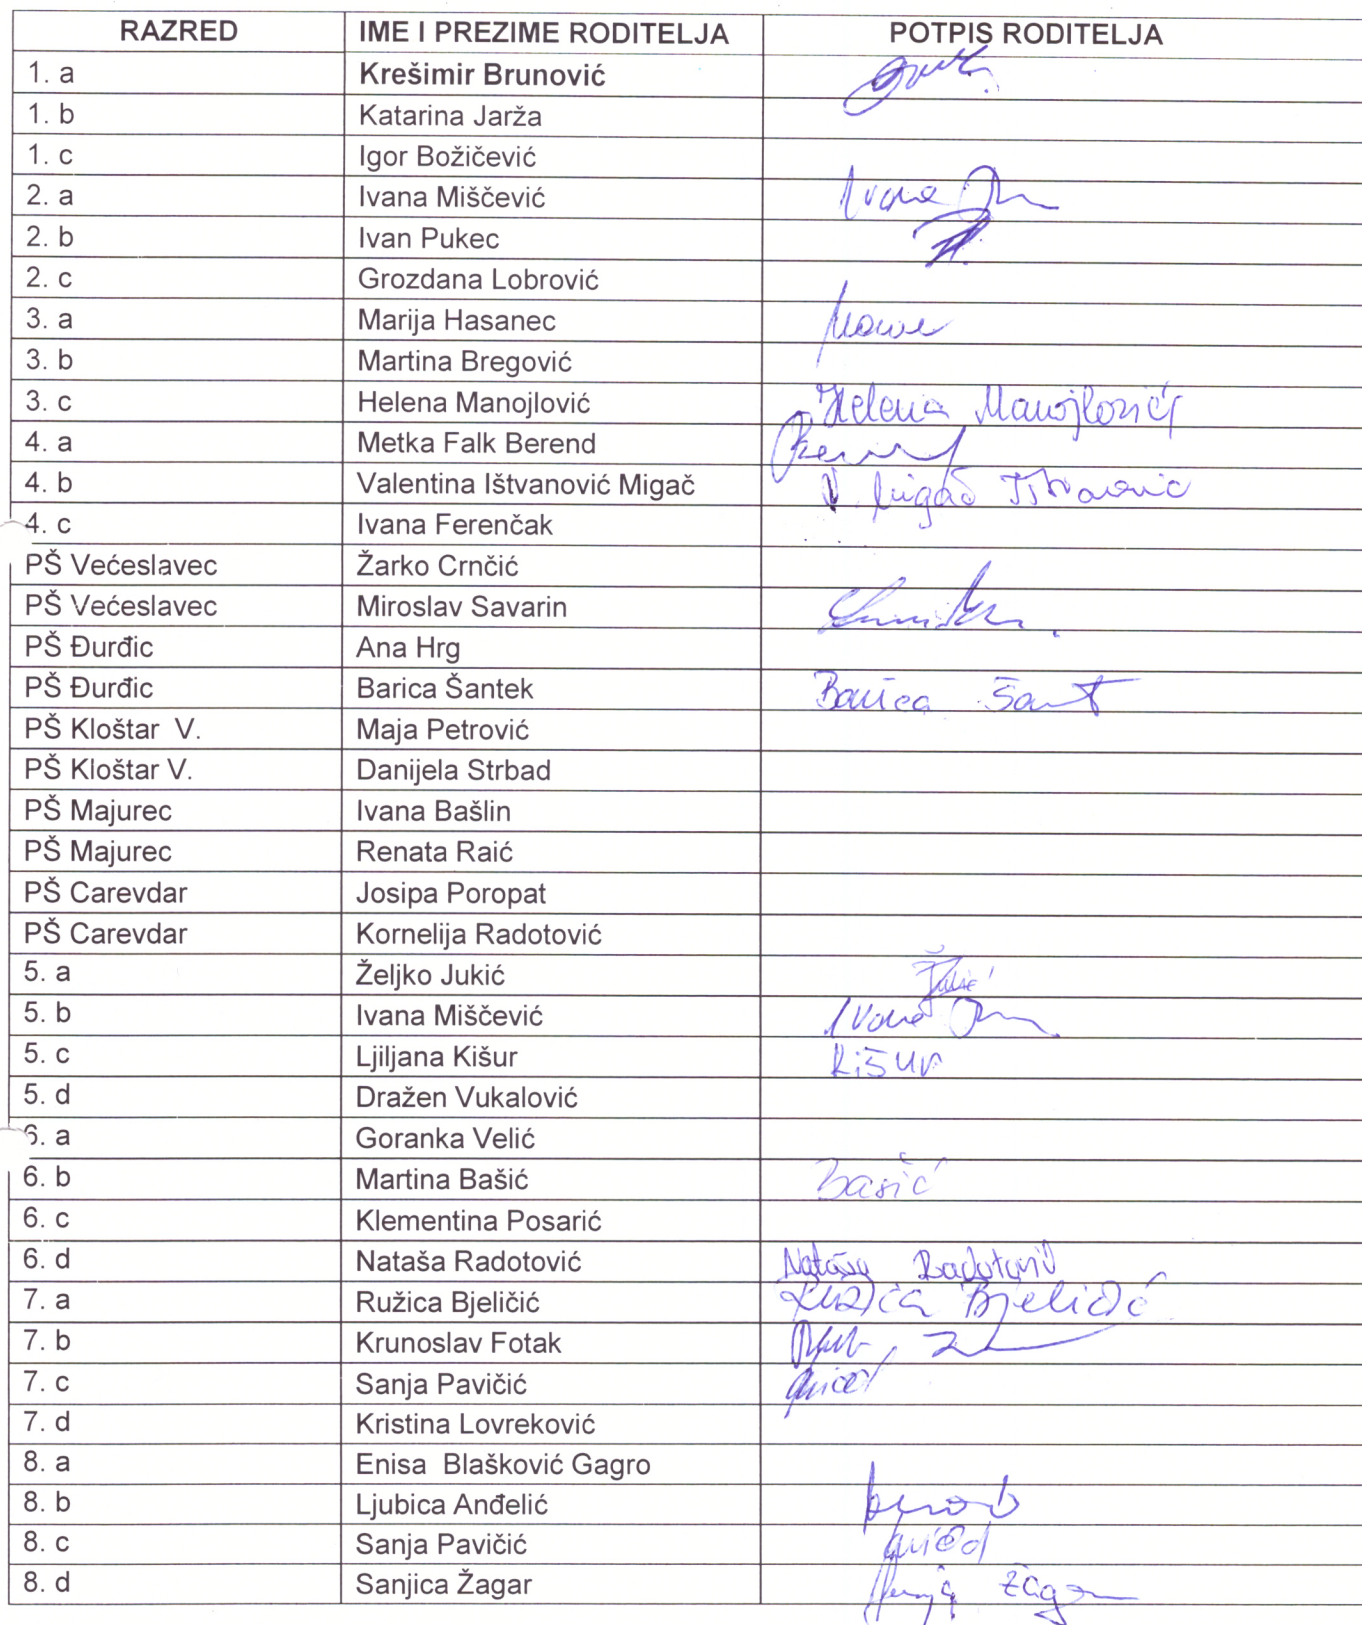 RAZRED IME I PREZIME RODITELJA POTPIS RODITELJA
1. a Krešimir Brunović
1. b Katarina Jarža
1. c Igor Božičević
2. a Ivana Miščević Ivana
2. b Ivan Pukec
2. c Grozdana Lobrović
3. a Marija Hasanec
3. b Martina Bregović
3. c Helena Manojlović Helena Manojlović
4. a Metka Falk Berend
4. b Valentina Ištvanović Migač V. Migač
4. c Ivana Ferenčak
PŠ Većeslavec Žarko Crnčić
PŠ Većeslavec Miroslav Savarin
PŠ Đurđic Ana Hrg
PŠ Đurđic Barica Šantek Barica
PŠ Kloštar V. Maja Petrović
PŠ Kloštar V. Danijela Strbad
PŠ Majurec Ivana Bašlin
PŠ Majurec Renata Raić
PŠ Carevdar Josipa Poropat
PŠ Carevdar Kornelija Radotović
5. a Željko Jukić Jukić
5. b Ivana Miščević Ivana
5. c Ljiljana Kišur Kišur
5. d Dražen Vukalović
6. a Goranka Velić
6. b Martina Bašić Bašić
6. c Klementina Posarić
6. d Nataša Radotović Nataša Radotović
7. a Ružica Bjeličić Ružica Bjeličić
7. b Krunoslav Fotak
7. c Sanja Pavičić
7. d Kristina Lovreković
8. a Enisa Blašković Gagro
8. b Ljubica Anđelić
8. c Sanja Pavičić
8. d Sanjica Žagar Žagar